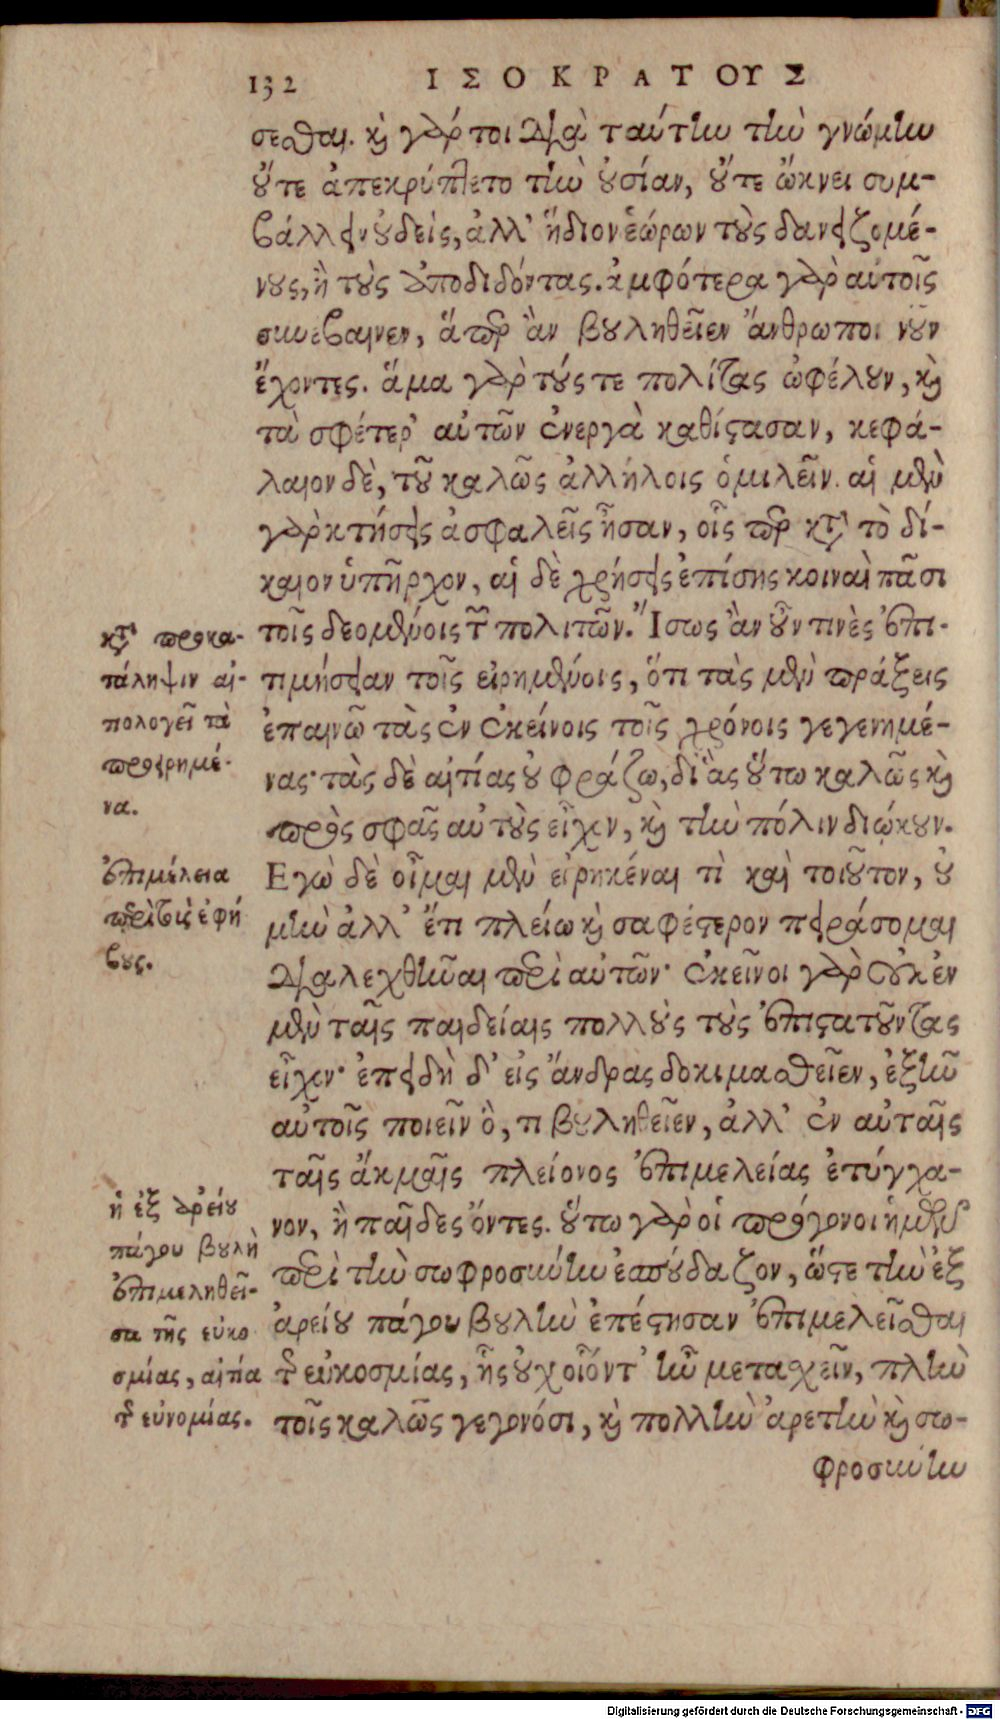 132 ΙΣΟΚΡΑΤΟΥΣ
σεσθαι. καὶ γάρ τοι διὰ ταύτην τὴν γνώμην
οὔτε ἀπεκρύπτετο τὴν οὐσίαν, οὔτε ὤκνει συμ-
βάλλειν οὐδείς, ἀλλ' ἥδιον ἑώρων τοὺς δανειζομέ-
νους, ἢ τοὺς ἀποδιδόντας. ἀμφότερα γὰρ αὐτοῖς
συνέβαινεν, ἅπερ ἂν βουληθεῖεν ἄνθρωποι νοῦν
ἔχοντες. ἅμα γὰρ τούς τε πολίτας ὠφέλουν, καὶ
τὰ σφέτερ' αὐτῶν ἐνεργὰ καθίστασαν, κεφά-
λαιον δὲ, τοῦ καλῶς ἀλλήλοις ὁμιλεῖν. αἱ μὲν
γὰρ κτήσεις ἀσφαλεῖς ἦσαν, οἷς περ κατὰ τὸ δί-
καιον ὑπῆρχον, αἱ δὲ χρήσεις ἐπίσης κοιναὶ πᾶσι
τοῖς δεομένοις τῶν πολιτῶν. Ἴσως ἂν οὖν τινὲς ἐπι-
τιμήσειαν τοῖς εἰρημένοις, ὅτι τὰς μὲν πράξεις
ἐπαινῶ τὰς ἐν ἐκείνοις τοῖς χρόνοις γεγενημέ-
νας· τὰς δὲ αἰτίας οὐ φράζω, δι' ἃς οὕτω καλῶς καὶ
πρὸς σφᾶς αὐτοὺς εἶχον, καὶ τὴν πόλιν διῴκουν.
Ἐγὼ δὲ οἶμαι μὲν εἰρηκέναι τὶ καὶ τοιοῦτον, οὐ
μὴν ἀλλ' ἔτι πλείω καὶ σαφέστερον πειράσομαι
διαλεχθῆναι περὶ αὐτῶν· ἐκεῖνοι γὰρ οὐκ ἐν
μὲν ταῖς παιδείαις πολλοὺς τοὺς ἐπιστατοῦντας
εἶχον· ἐπειδὴ δ' εἰς ἄνδρας δοκιμασθεῖεν, ἐξῆν
αὐτοῖς ποιεῖν ὅ, τι βουληθεῖεν, ἀλλ' ἐν αὐταῖς
ταῖς ἀκμαῖς πλείονος ἐπιμελείας ἐτύγχα-
νον, ἢ παῖδες ὄντες. οὕτω γὰρ οἱ πρόγονοι ἡμῶν
περὶ τὴν σωφροσύνην ἐσπούδαζον, ὥστε τὴν ἐξ
ἀρείου πάγου βουλὴν ἐπέστησαν ἐπιμελεῖσθαι
τῆς εὐκοσμίας, ἧς οὐχ οἷόντ' ἦν μετασχεῖν, πλὴν
τοῖς καλῶς γεγονόσι, καὶ πολλὴν ἀρετὴν καὶ σω-
φροσύνην
κατὰ προκα-
τάληψιν αἰ-
πολογεῖ τὰ
προειρημέ-
να.
ἐπιμέλεια
περὶ τοὺς ἐφή
βους.
ἡ ἐξ ἀρείου
πάγου βουλὴ
ἐπιμεληθεῖ-
σα τῆς εὐκο
σμίας, αἰτία
τῆς εὐνομίας.
Digitalisierung gefördert durch die Deutsche Forschungsgemeinschaft - DFG